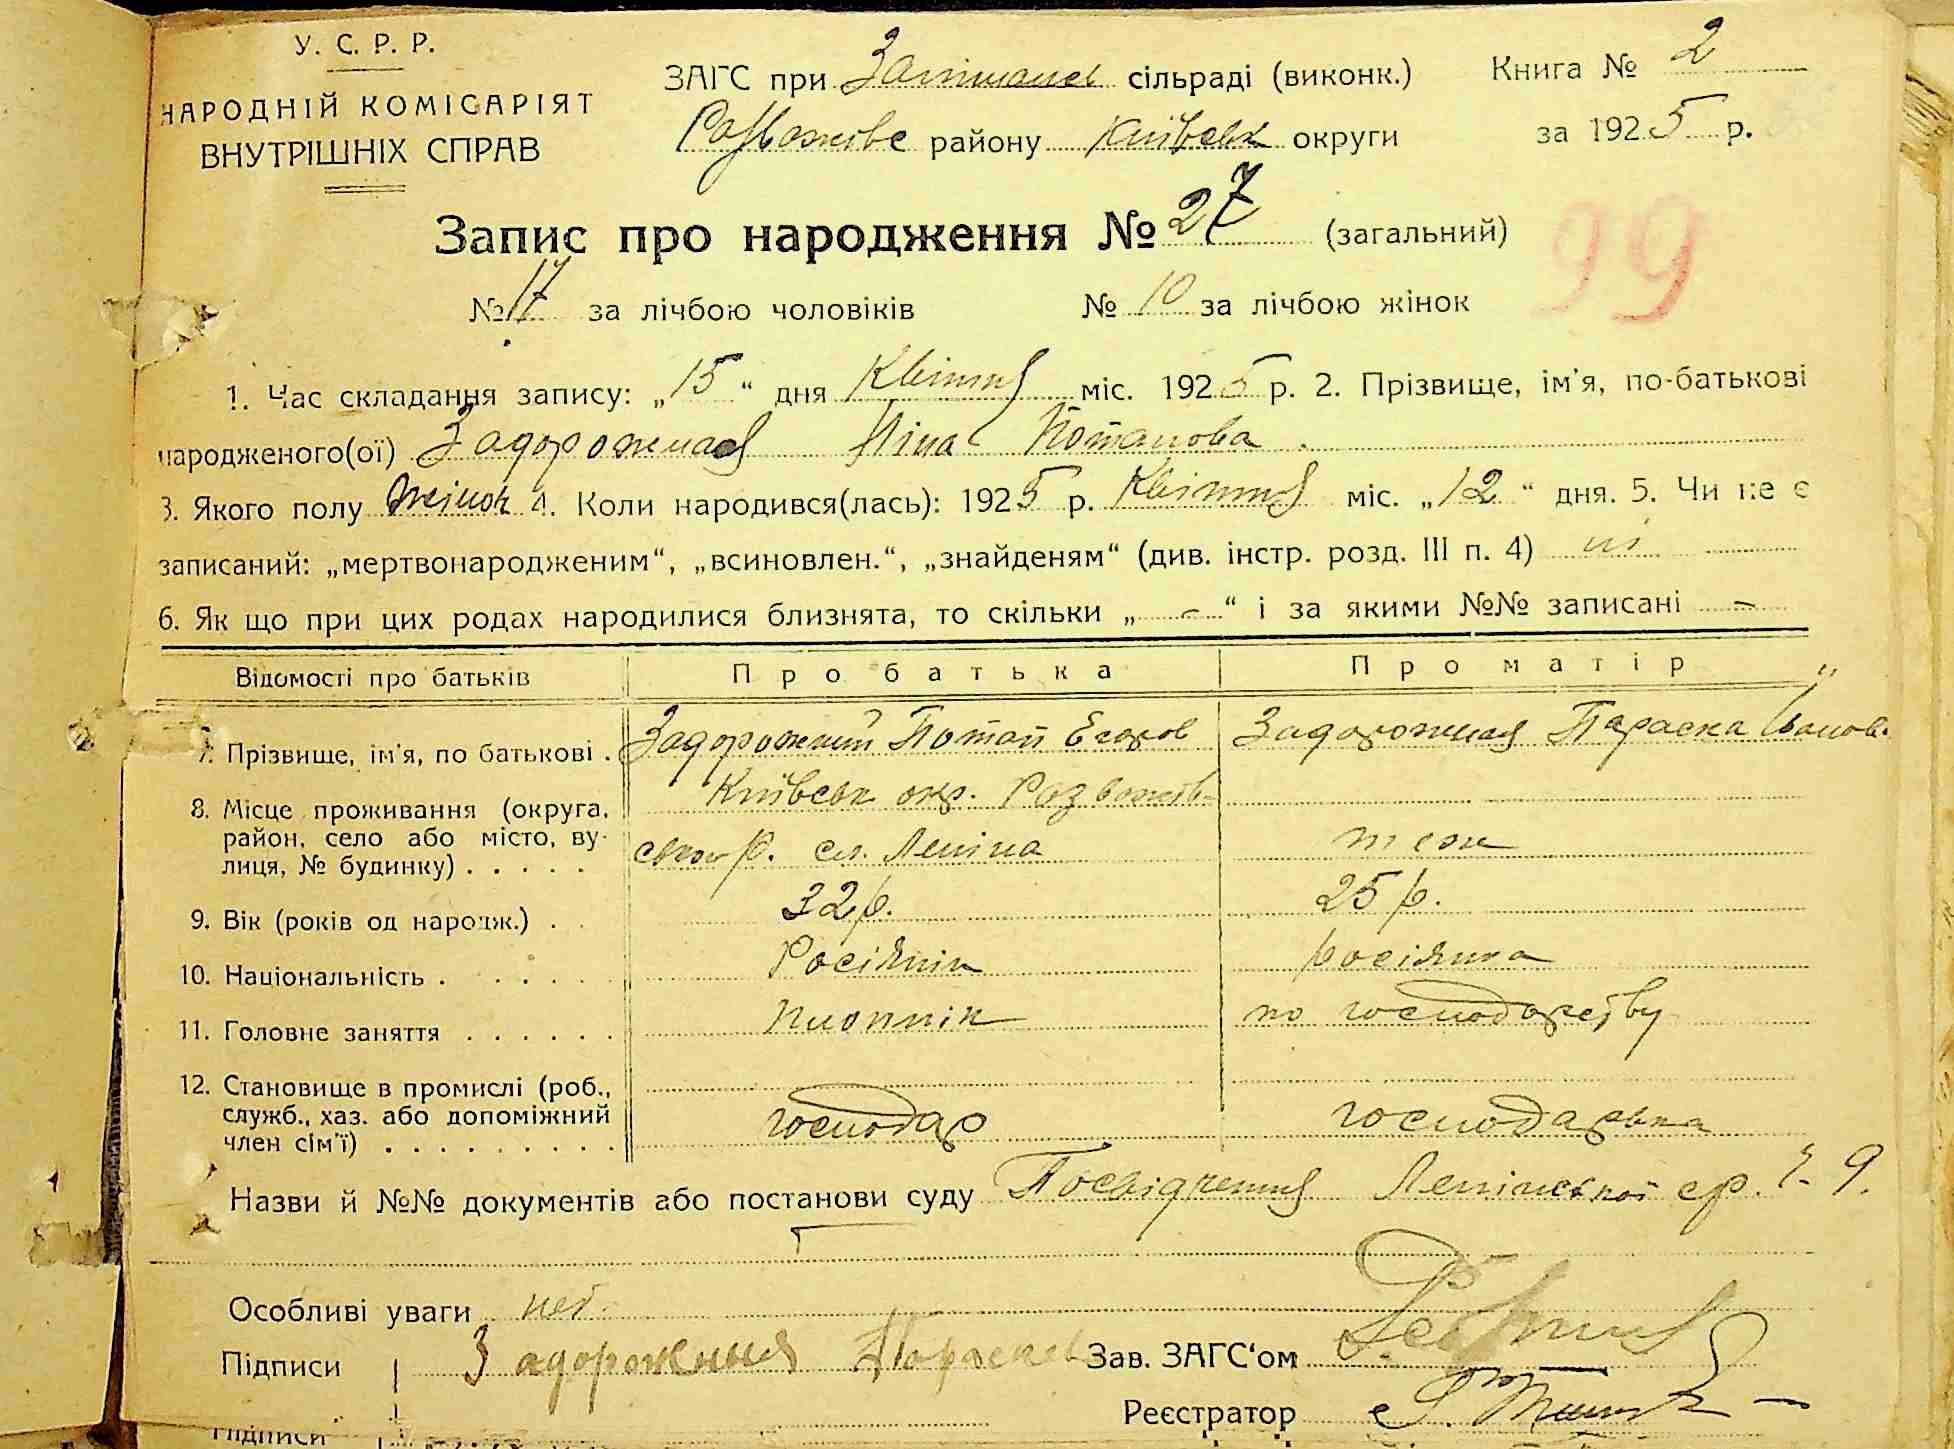 У. С. Р. Р.
НАРОДНІЙ КОМІСАРІЯТ
ВНУТРІШНІХ СПРАВ
ЗАГС при сільраді (виконк.) Книга № 2
району Київськ округи за 1925 р.
Запис про народження № 27 (загальний)
99
№ 17 за лічбою чоловіків № 10 за лічбою жінок
1. Час складання запису: „15“ дня Квітня міс. 1925 р. 2. Прізвище, ім'я, по-батькові
народженого(ої) Задорожная Ніна Потапова
3. Якого полу жіноч 4. Коли народився(лась): 1925 р. Квітня міс. „12“ дня. 5. Чи не є
записаний: „мертвонародженим“, „всиновлен.“, „знайденям“ (див. інстр. розд. III п. 4) ні
6. Як що при цих родах народилися близнята, то скільки „ – “ і за якими №№ записані –
Відомості про батьків Про батька Про матір
7. Прізвище, ім'я, по батькові . Задорожний Потап Егоров Задорожная Параска Іванов.
8. Місце проживання (округа, район, село або місто, вулиця, № будинку) . . . . . Київськ окр. Розважівськ р. сл. Леніна теж
9. Вік (років од народж.) . . 32 р. 25 р.
10. Національність . . . . . . Росіянін росіянка
11. Головне заняття . . . . . . по господарству
12. Становище в промислі (роб., служб., хаз. або допоміжний член сім'ї) . . . . . . . . . господар господарька
Назви й №№ документів або постанови суду Посвідчення Ленінської ср. 9.
Особливі уваги нет.
Підписи Задорожныя Параска Зав. ЗАГС'ом
Реєстратор
Підписи